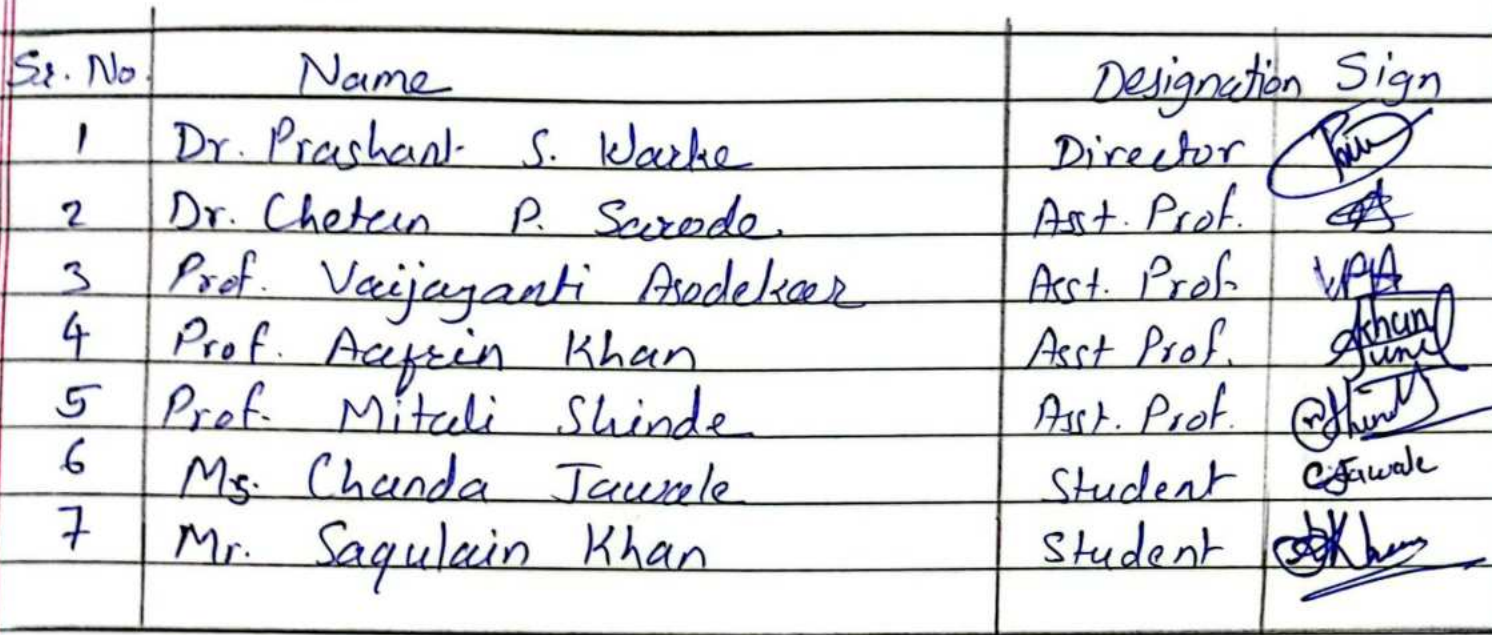 Sr. No. Name Designation Sign
1 Dr. Prashant S. Warke Director
2 Dr. Chetan P. Sarode. Asst. Prof.
3 Prof. Vaijayanti Asodekar Asst. Prof. VPA
4 Prof. Aafrin Khan Asst Prof. Khan
5 Prof. Mitali Shinde Asst. Prof.
6 Ms. Chanda Jawale Student CJawale
7 Mr. Saqulain Khan Student Khan